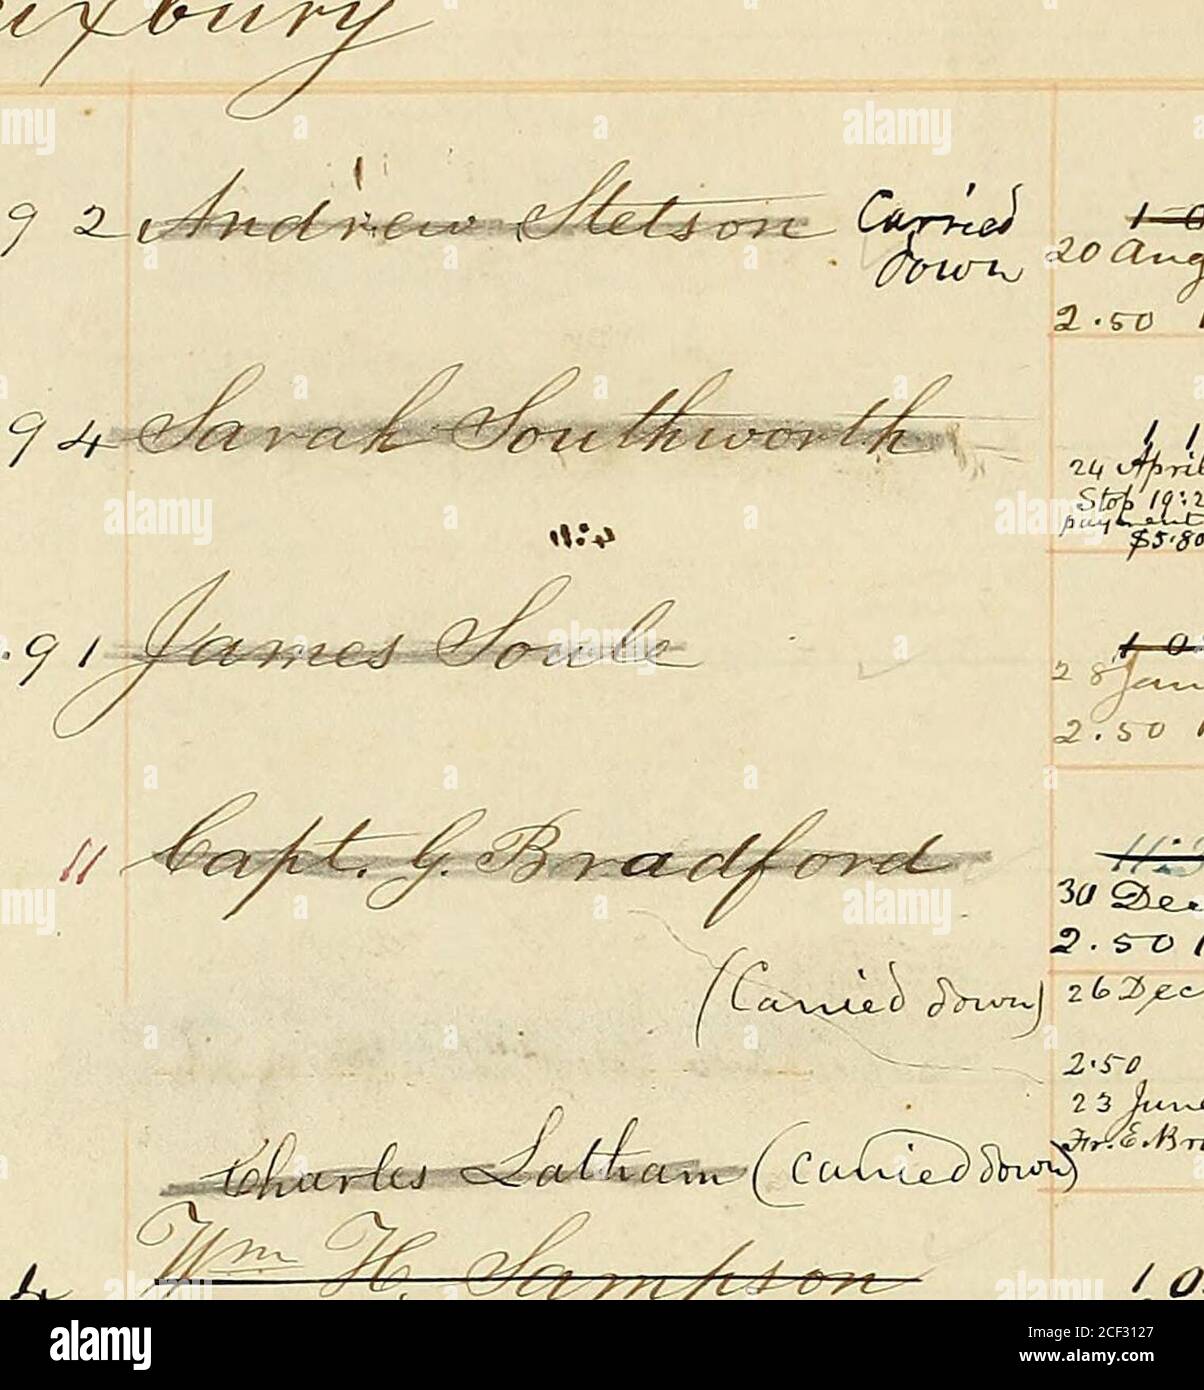 uxbury
92 Andrew Stetson Carried
down
20 Aug
2.50
94 Sarah Southworth
24 April
Stop 19:2
payment
$5.80
4:11
.91 James Soule
28 Jan
2.50
11 Capt. G. Bradford
30 Dec
2.50
(Carried down) 26 Dec
2.50
23 June
Fr. E. Br
Charles Latham (carried down)
4 Wm H. Sampson 10
alamy
Image ID: 2CF3127
www.alamy.com